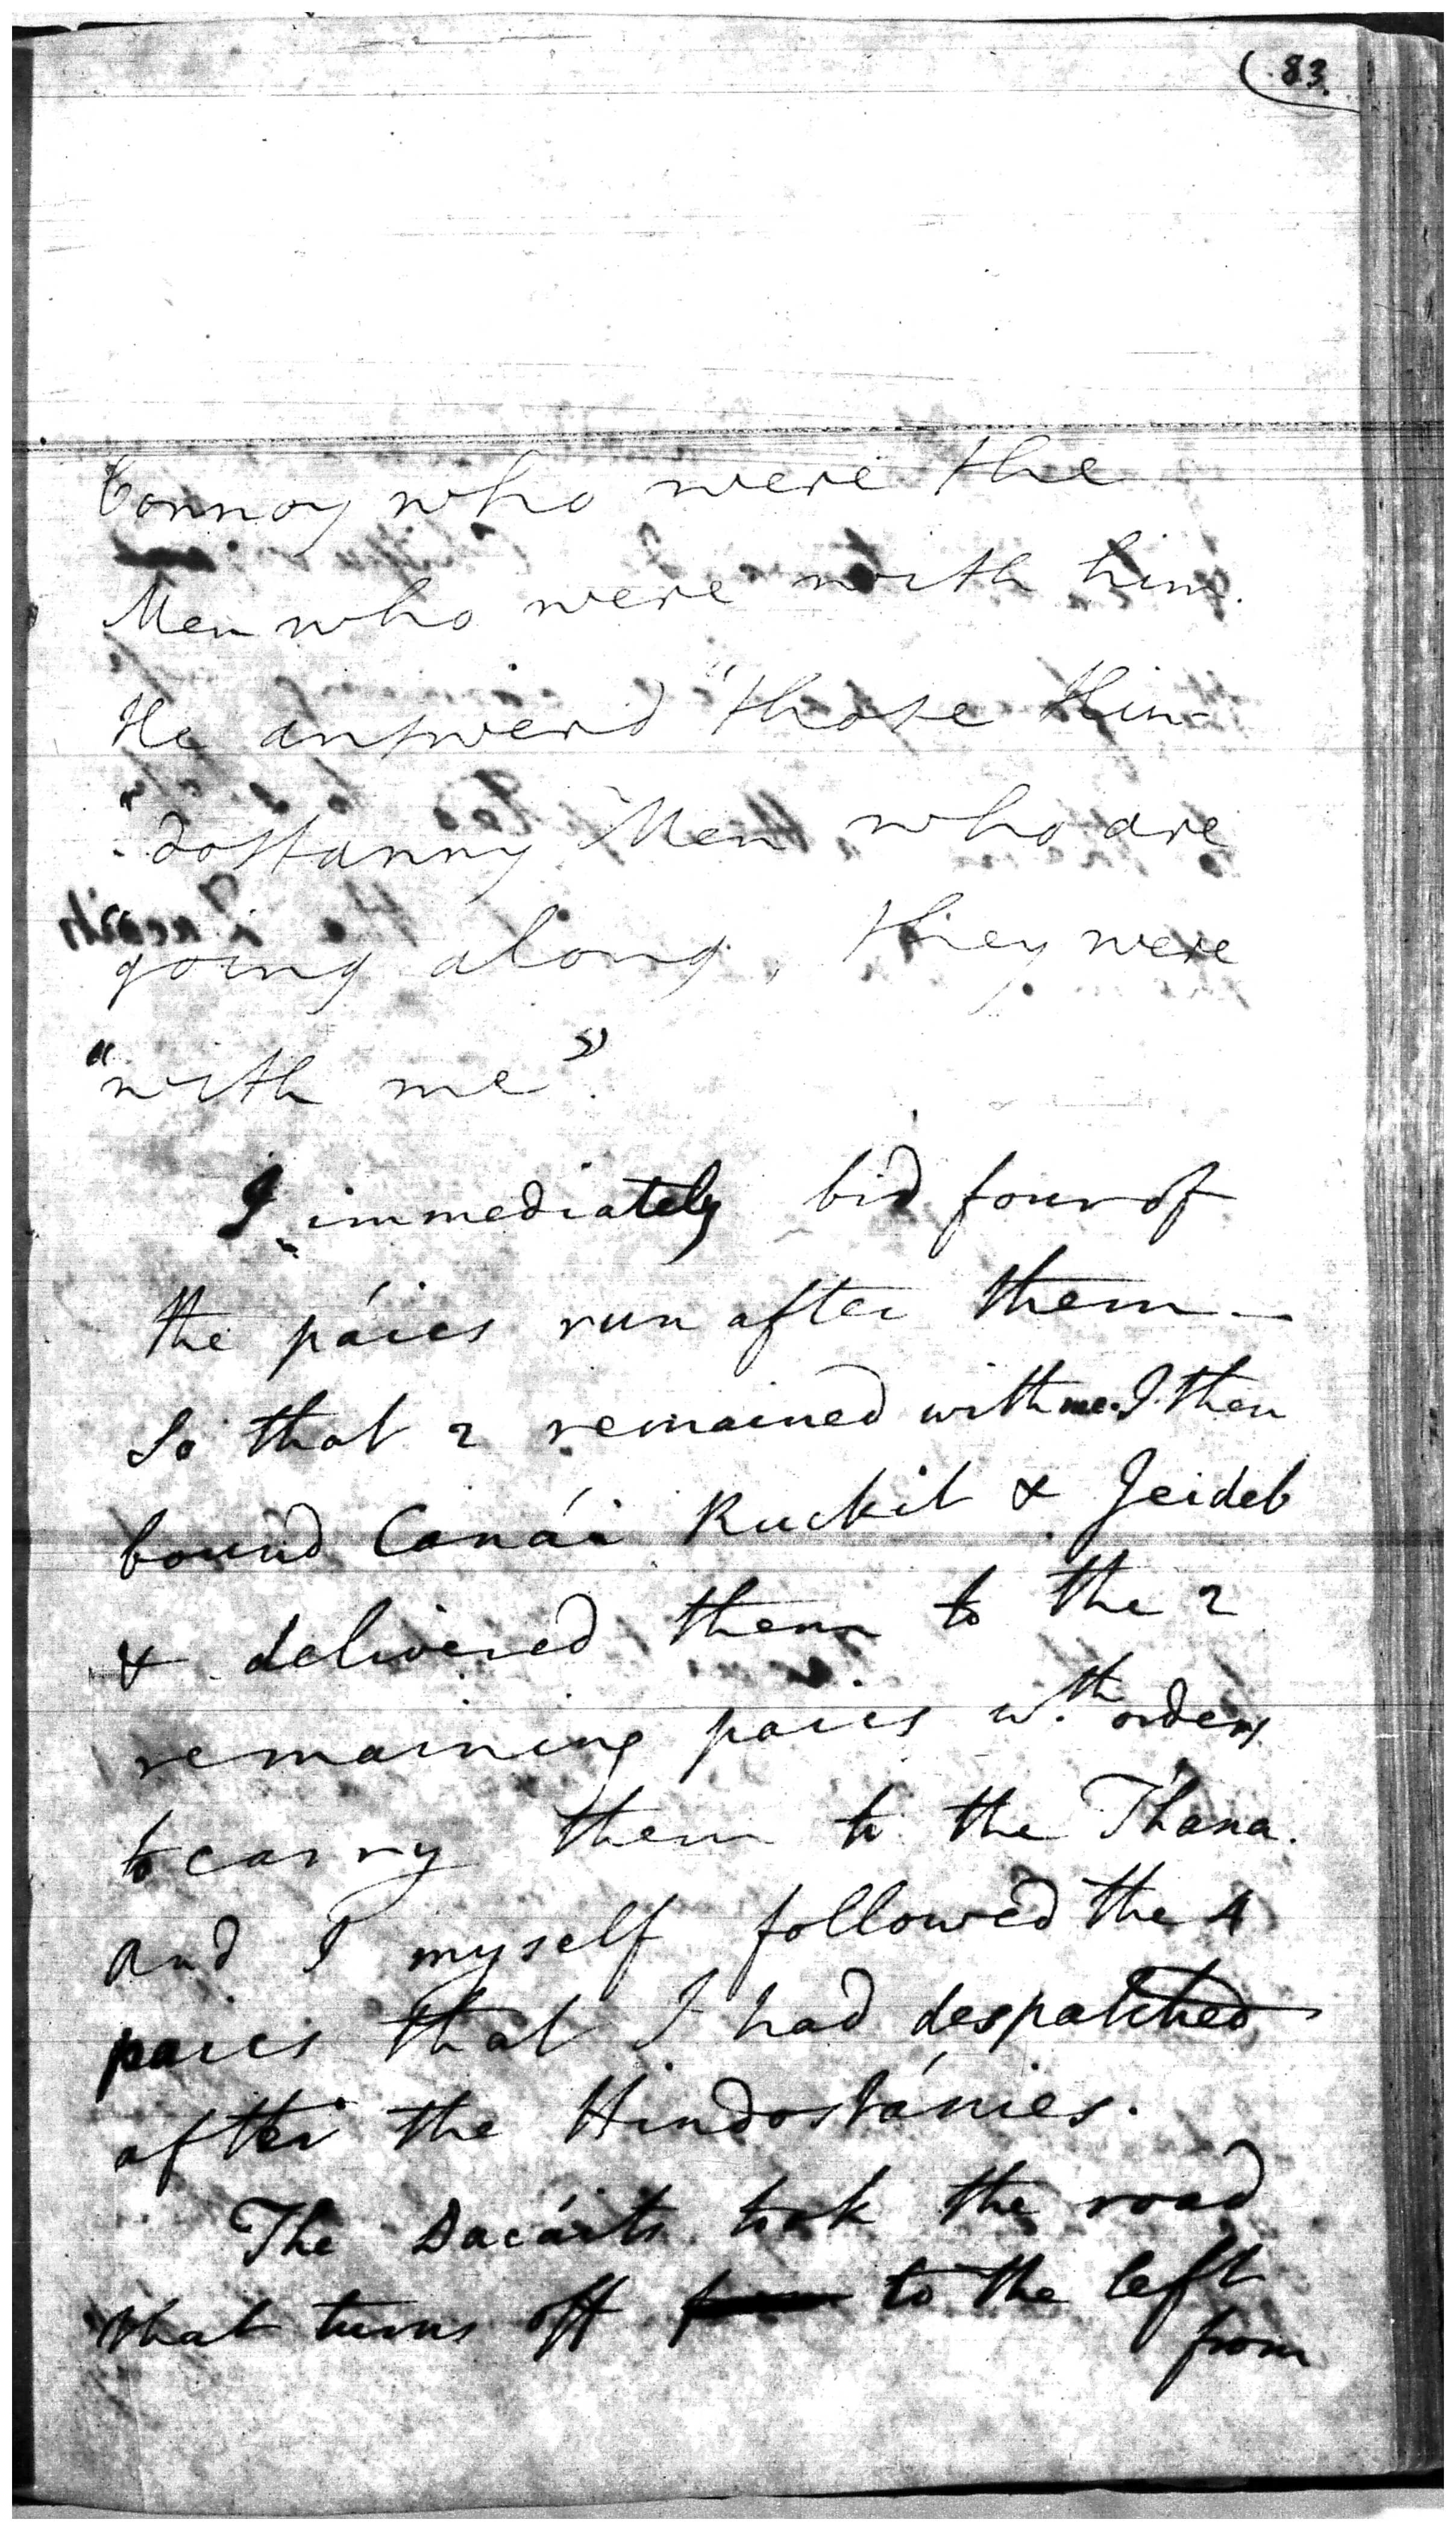 83.
Connoy who were the
Men who were with him.
He answerd "those Hin-
"dostanny Men who are
going along, they were
"with me".
I immediately bid four of
the páics run after them
So that 2 remained with me. I then
bound Canái Ruckit & Jeideb
& delivered them to the 2
remaining paics wth. orders
to carry them to the Thana.
And I myself followed the 4
paics that I had despatched
after the Hindostánies.
The Dacáits took the road
that turns off to the left
from